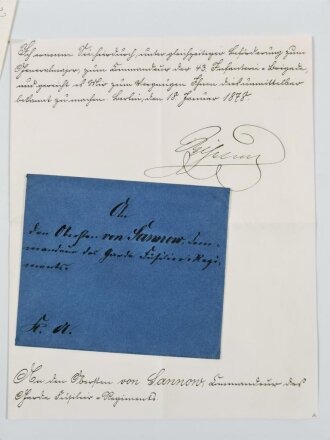 Ich ernenne Sie hierdurch, unter gleichzeitiger Beförderung zum
Generalmajor, zum Commandeur der 43. Infanterie-Brigade,
und gereicht es Mir zum Vergnügen Ihnen dies unmittelbar
bekannt zu machen. Berlin, den 18. Januar 1878.
Wilhelm
An
den Obersten von Sannow, Com-
mandeur des Garde Füsilier-Regi-
ments.
An den Obersten von Sannow, Commandeur des
Garde Füsilier-Regiments